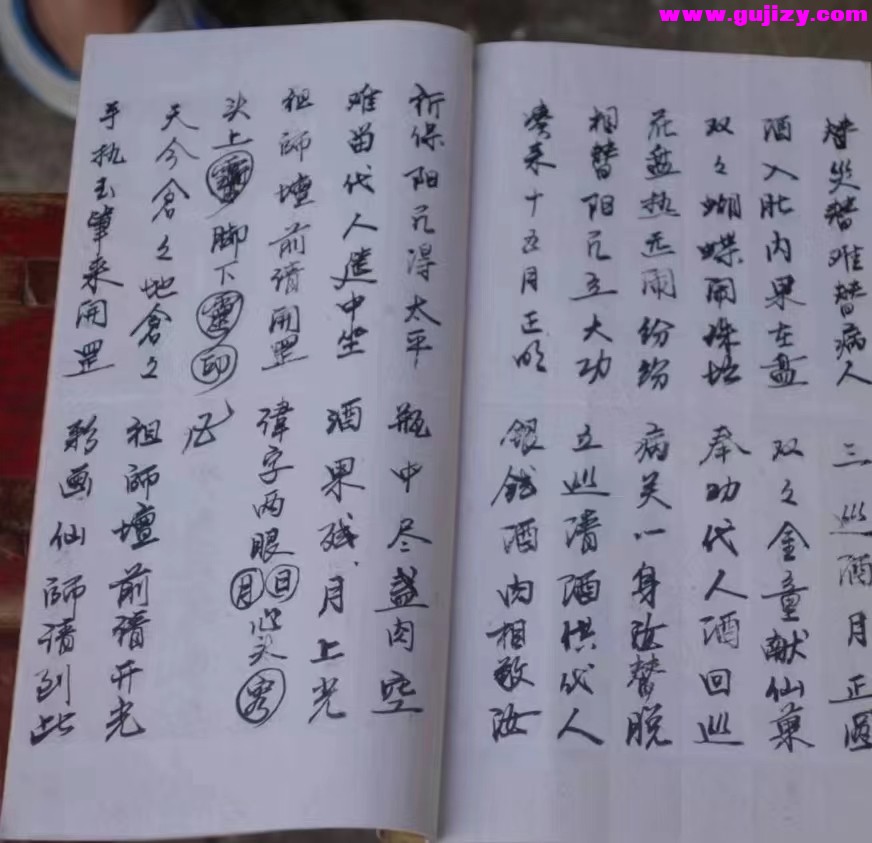 www.gujizy.com
替災替难替病人 三巡酒月正圆
酒入肚内果在盘 双々金童献仙菓
双々蝴蝶闹珠坛 奉功代人酒回巡
花盘热闹纷纷 病关一身汝替脱
相替阳元立大功 立巡清酒供代人
十五月正明 银钱酒肉相敬汝
祈保阳元得太平 瓶中尽盏肉空
难苗代人遣中坐 酒果残月上光
祖師壇前请開罡 讳字两眼 月 日 心头
头上 脚下 靈 印
天今倉々地倉々 祖師壇前请开光
手执玉筆来開罡 彩画仙師请到此